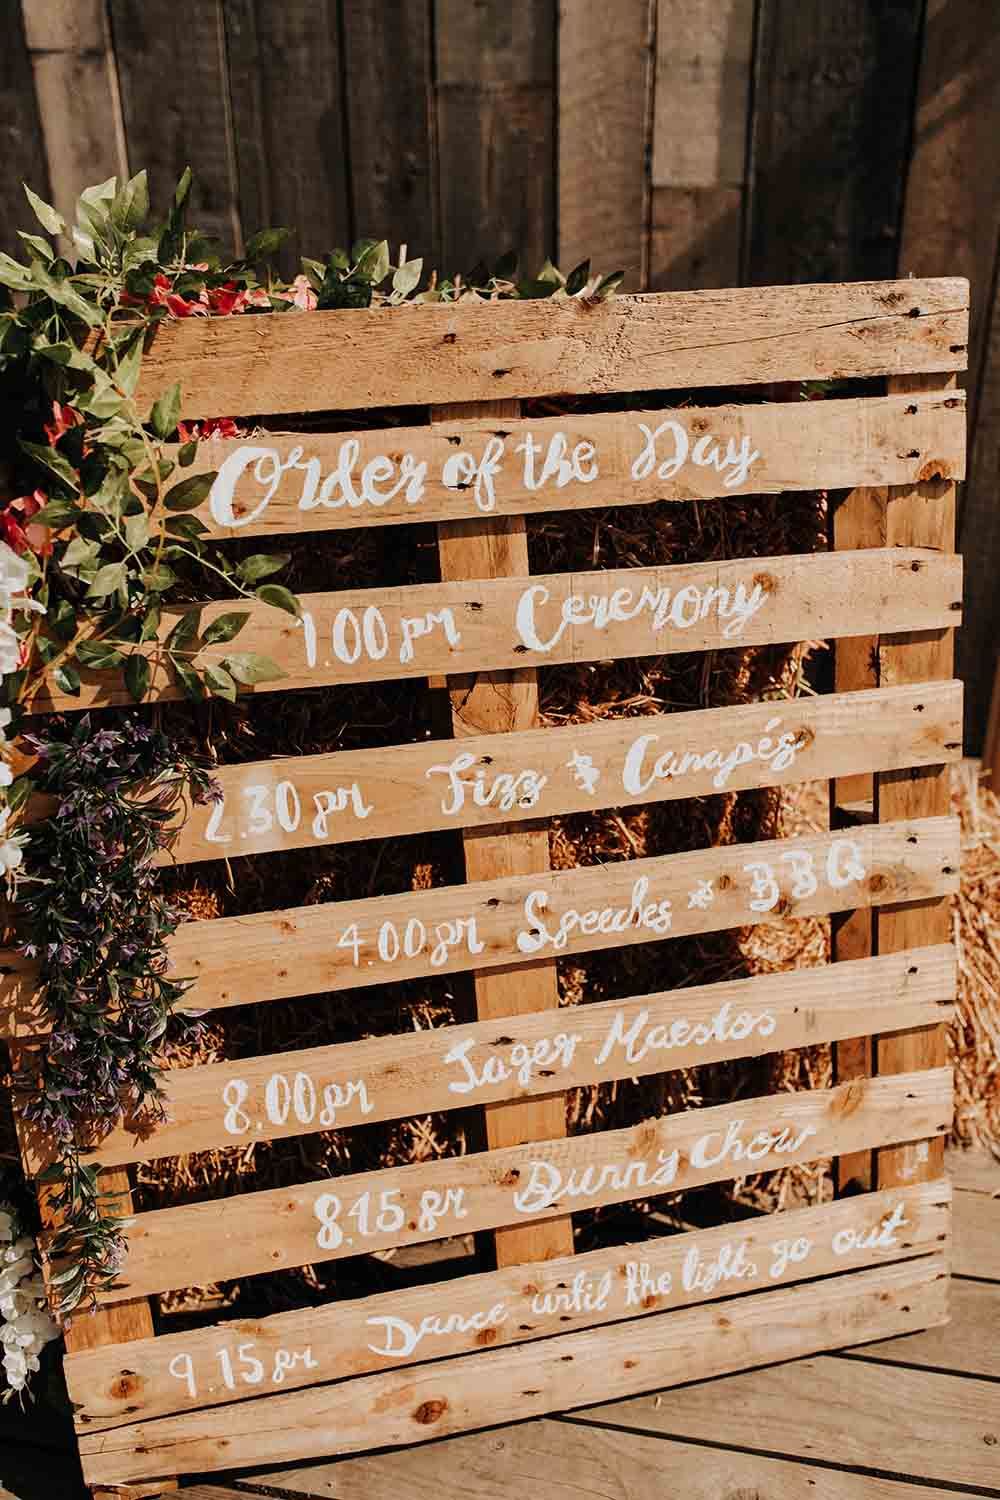 Order of the Day
1.00pm Ceremony
2.30pm Fizz & Canapés
4.00pm Speeches * BBQ
8.00pm Jager Maestos
8.45pm Bunny Chow
9.15pm Dance until the lights go out